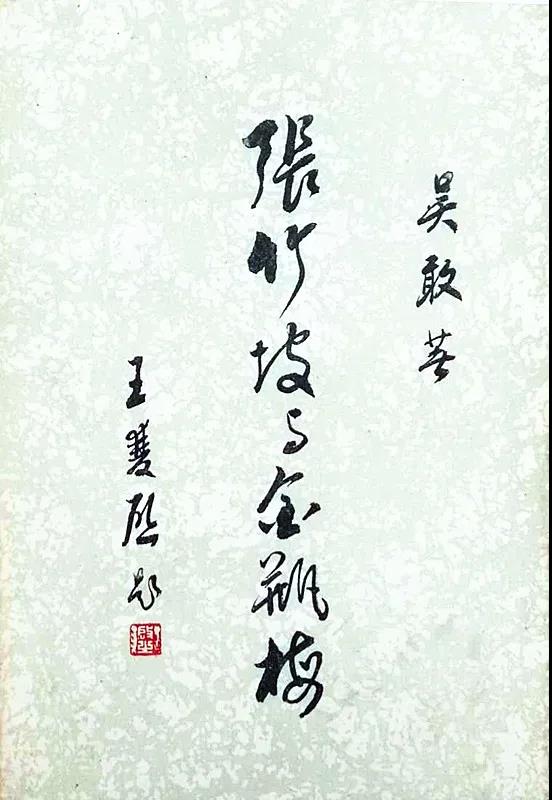 吴敢著
張竹坡与金瓶梅
王雙啟题